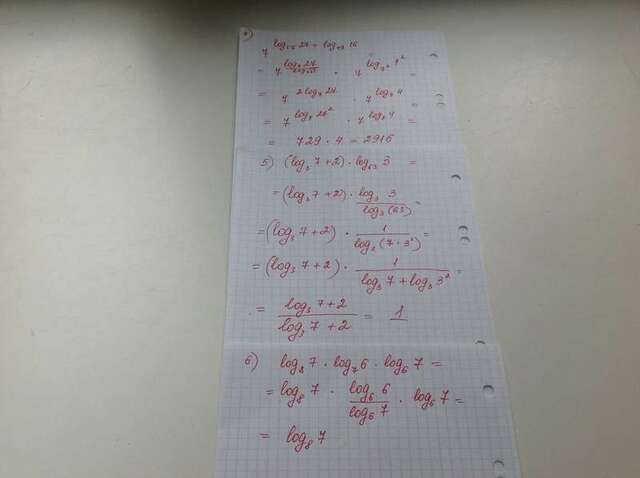 7^
= 7^ · 7^ =
= 7^{2 log_7 27} · 7^{log_7 4} =
= 7^{log_7 } · 7^{log_7 4} =
= 729 · 4 = 2916
5) (log_3 7+2) · log_{63} 3 =
= (log_3 7+2) · \frac{log_3 3}{log_3 (63)} =
= (log_3 7+2) · \frac{1}{log_3 (7·3^2)} =
= (log_3 7+2) · \frac{1}{log_3 7 + log_3 3^2} =
= \frac{log_3 7+2}{log_3 7+2} = 1
6) log_8 7 · log_7 6 · log_6 7 =
= log_8 7 · \frac{log_6 6}{log_6 7} · log_6 7 =
= log_8 7